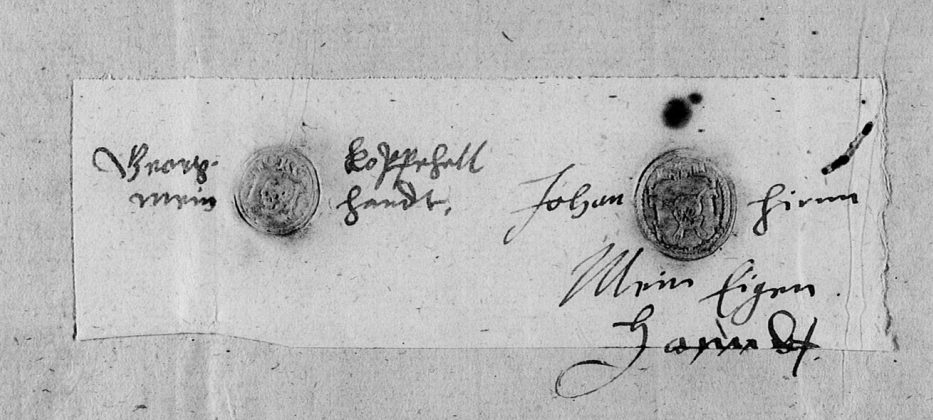 Georg Koppehell
mein handt,
Johan hirnn
Mein Eigen
Hanndt